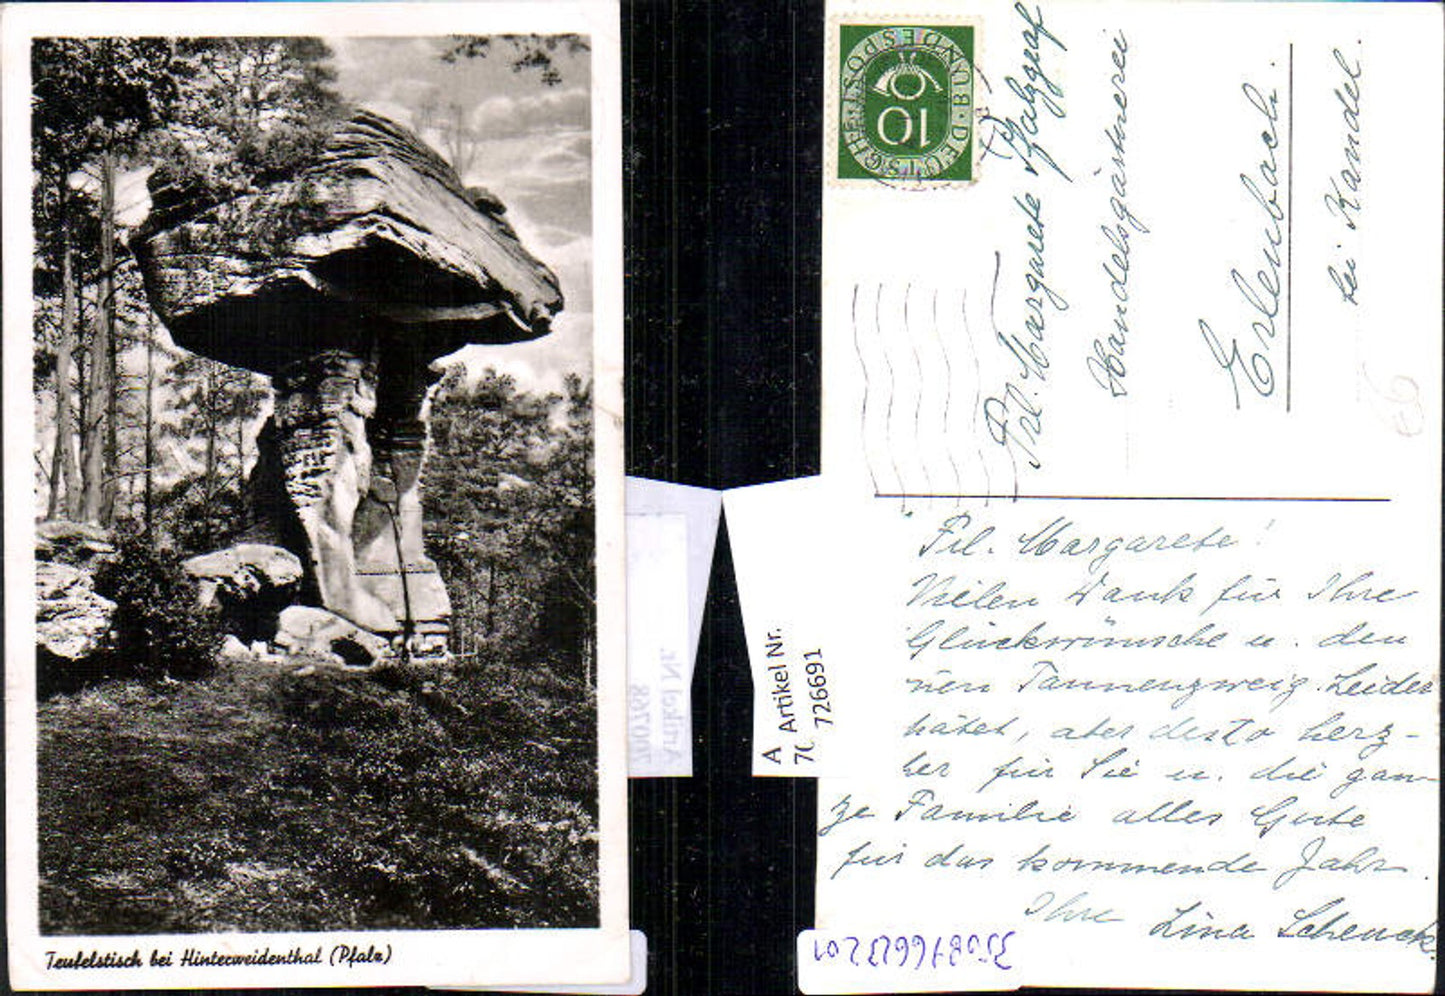 Teufelstisch bei Hinterweidenthal (Pfalz)
DEUTSCHE BUNDESPOST
10
Frl. Margarete Pfalzgraf
Handelsgärtnerei
Erlenbach.
bei Kandel.
Frl. Margarete!
Vielen Dank für Ihre
Glückwünsche u. den
Tannenzweig. Leider
aber desto herz-
für Sie u. die gan-
ze Familie alles Gute
für das kommende Jahr.
Ihre Lina Schenck.
Artikel Nr.
700768
A
70
Artikel Nr.
726691